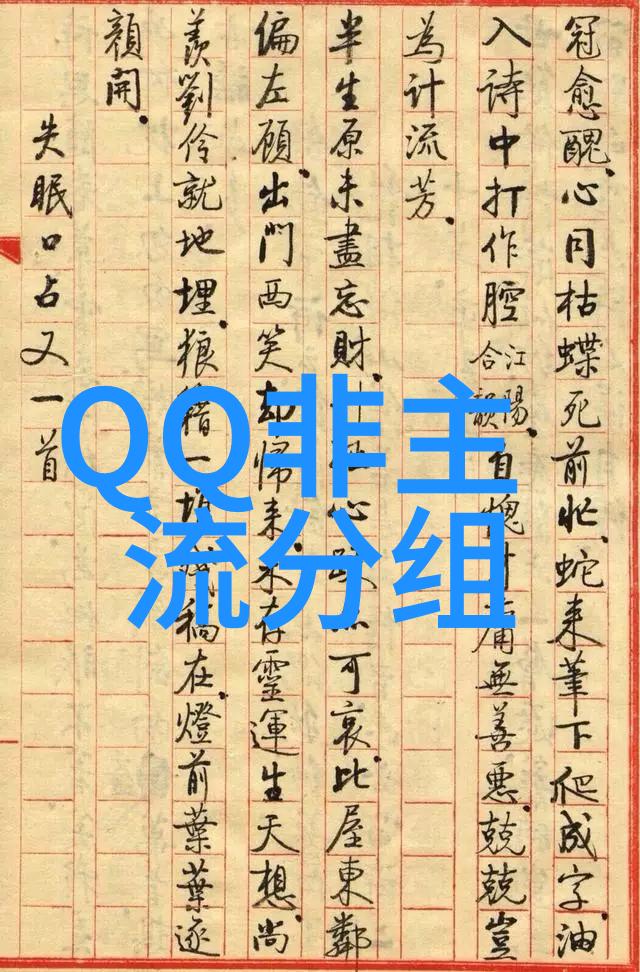 冠愈醜。心同枯蝶死前忙。蛇来筆下爬成字。油
入詩中打作腔江陽合韻。自愧庸無善惡。兢兢豈
為計流芳。
半生原未盡忘財。心可哀。比屋東鄰
偏左顧。出門西笑却歸来。不存靈運生天想。尚
羨劉伶就地埋。狼籍一堆殘稿在。燈前葉葉逐
顏開。
失眠口占又一首
QQ非主
流分组